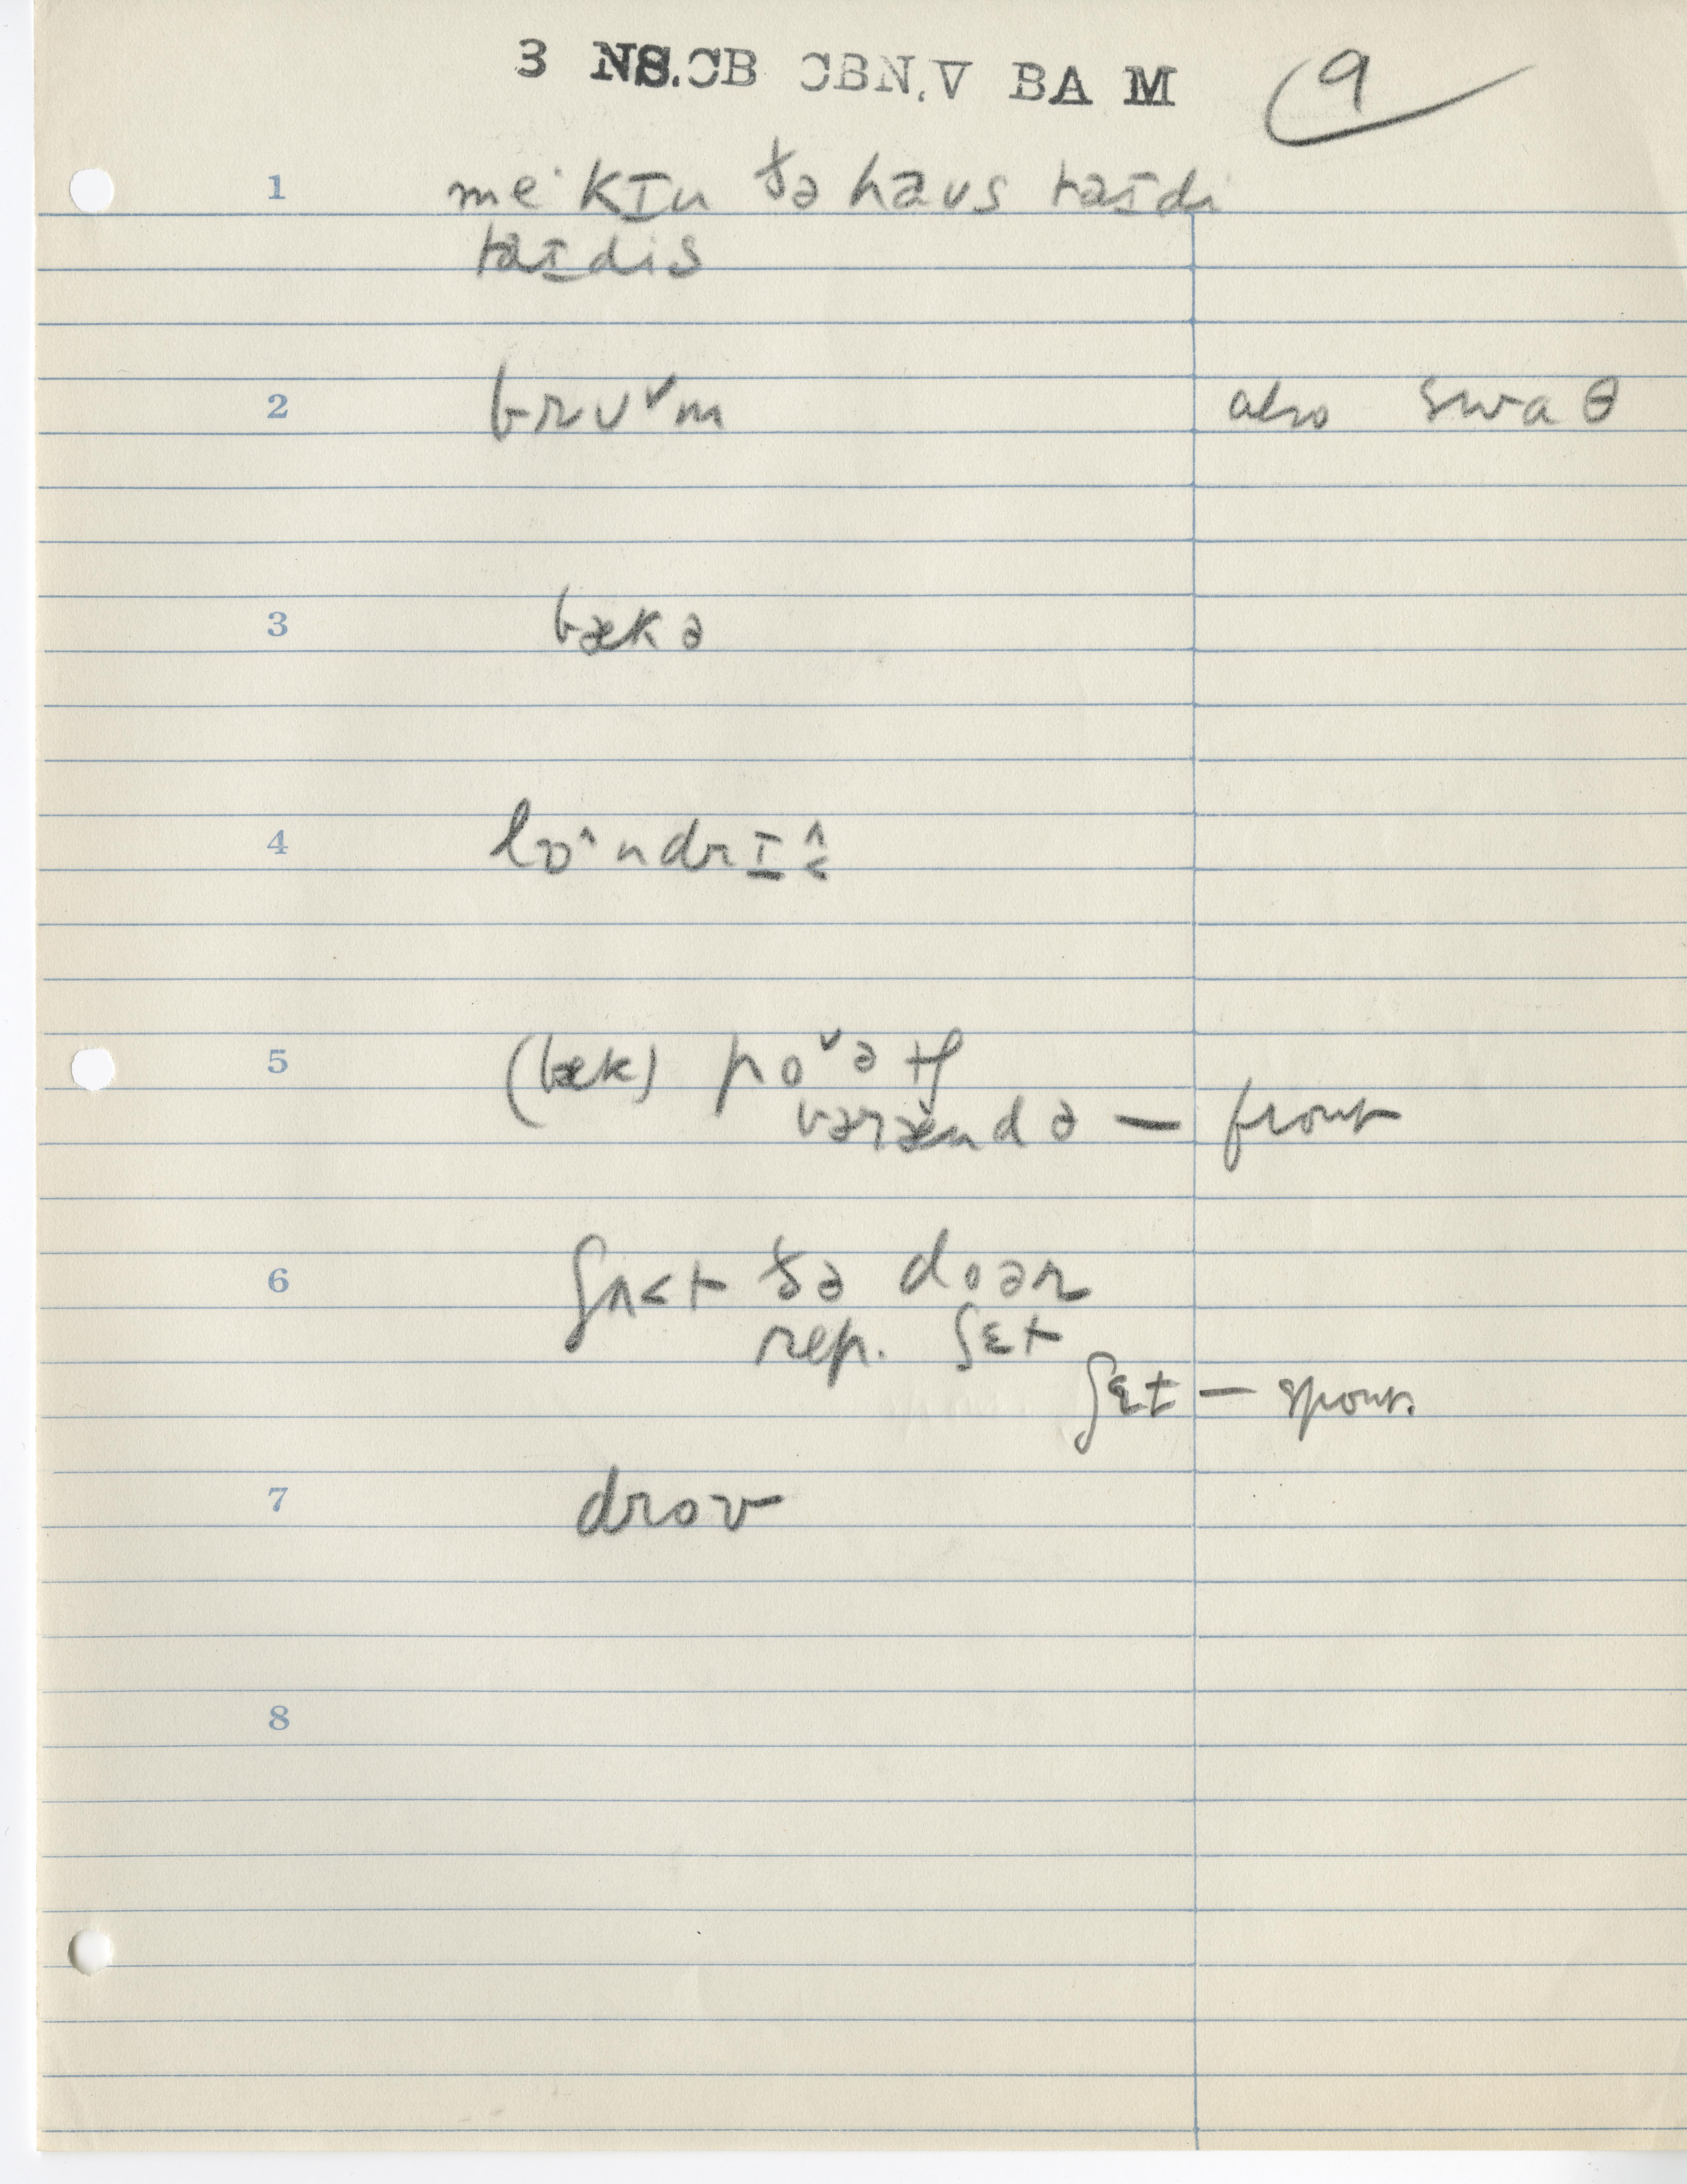 3 NS.CB CBN.V BA M 9
1 me·kɪn ðə haus taɪdi
taɪdis
2 brʊˇm also swaθ
3 bækə
4 lɒ^ndrɪ
5 (bæk) poˇətʃ
vərændə — front
6 ʃʌ<t ðə doər
rep. ʃɛt
ʃɛt — spont.
7 droʊ
8